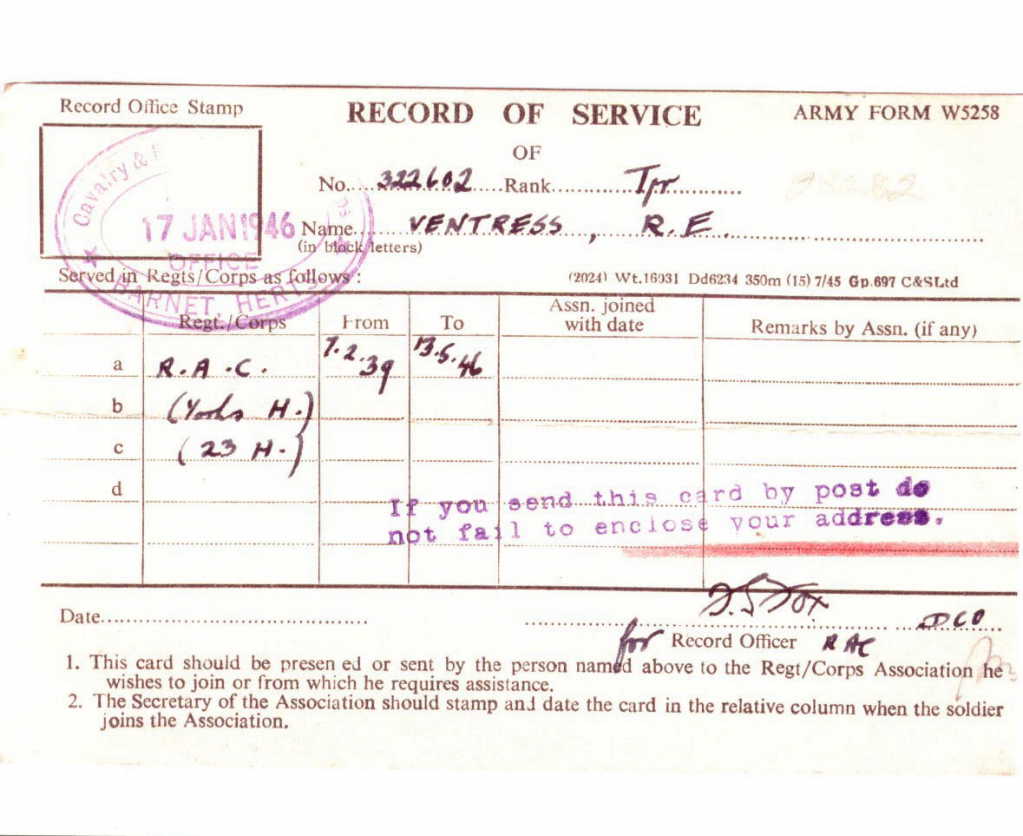 Record Office Stamp
RECORD OF SERVICE
ARMY FORM W5258
OF
No. 322602 Rank Tpr
Cavalry &
17 JAN 1946
OFFICE
BARNET, HERTS
Name VENTRESS, R.E.
(in block letters)
Served in Regts/Corps as follows:
(2024) Wt.16931 Dd6234 350m (15) 7/45 Gp.697 C&SLtd
Regt./Corps From To Assn. joined with date Remarks by Assn. (if any)
a R.A.C. 7.2.39 13.5.46
b (Yorks H.)
c (23 H.)
d
If you send this card by post do
not fail to enclose your address.
Date
for Record Officer RAC
1. This card should be presen ed or sent by the person named above to the Regt/Corps Association he
wishes to join or from which he requires assistance.
2. The Secretary of the Association should stamp and date the card in the relative column when the soldier
joins the Association.